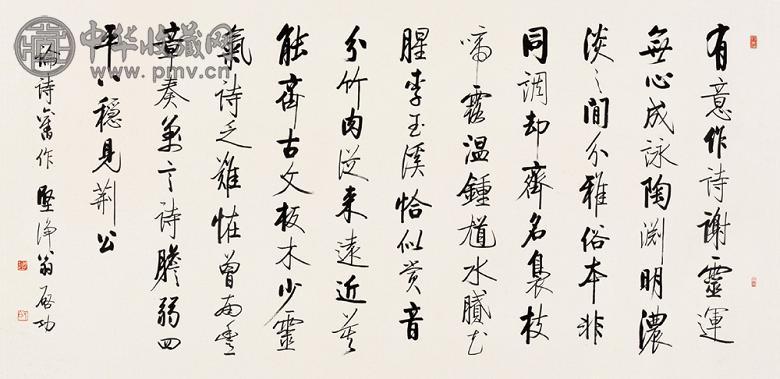 有意作詩謝靈運
無心成詠陶淵明濃
淡之間分雅俗本非
同調却齊名梟枝
啼露温鍾馗水膩花
腥李玉溪恰似赏音
分竹肉從来遠近莫
能齊古文板木少靈
氣詩之難怪曾南豐
章奏萬言詩膽弱四
平八穩見荆公
論詩舊作 堅浄翁啟功
中华收藏网
www.pmv.cn